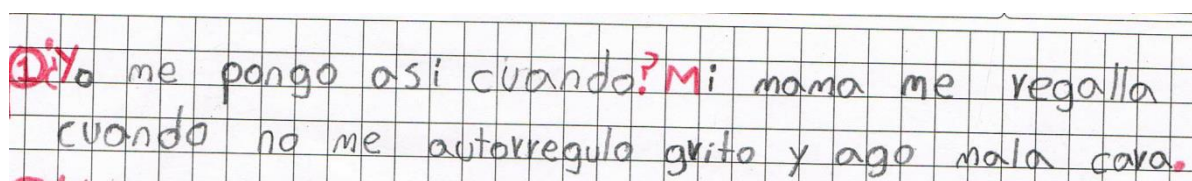 ① ¿Yo me pongo asi cuando? Mi mama me regalla
cuando no me autorregulo grito y ago mala cara.